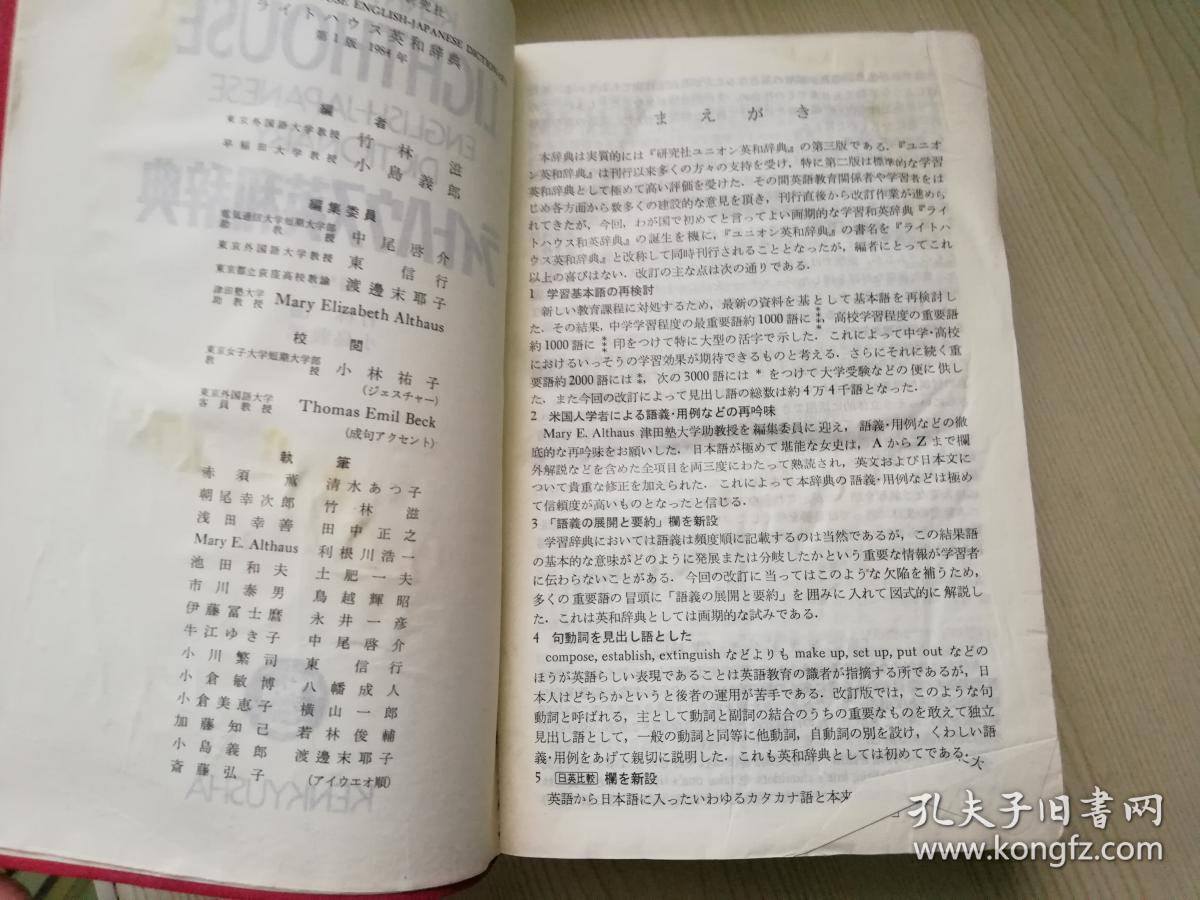 研究社
ENGLISH-JAPANESE DICTIONARY
ライトハウス英和辞典
第1版 1984年
編者
東京外国語大学教授 竹林滋
早稲田大学教授 小島義郎
編集委員
電気通信大学短期大学部助教授 中尾啓介
東京外国語大学教授 東信行
東京都立荻窪高校教諭 渡邊末耶子
津田塾大学助教授 Mary Elizabeth Althaus
校閲
東京女子大学短期大学部教授 小林祐子
(ジェスチャー)
東京外国語大学客員教授 Thomas Emil Beck
(成句アクセント)
執筆
赤須薫 清水あつ子
朝尾幸次郎 竹林滋
浅田幸善 田中正之
Mary E. Althaus 利根川浩一
池田和夫 土肥一夫
市川泰男 鳥越輝昭
伊藤冨士麿 永井一彦
牛江ゆき子 中尾啓介
小川繁司 東信行
小倉敏博 八幡成人
小倉美恵子 横山一郎
加藤知己 若林俊輔
小島義郎 渡邊末耶子
斎藤弘子 (アイウエオ順)
まえがき
本辞典は実質的には『研究社ユニオン英和辞典』の第三版である.『ユニオ
ン英和辞典』は刊行以来多くの方々の支持を受け, 特に第二版は標準的な学習
英和辞典として極めて高い評価を受けた. その間英語教育関係者や学習者をは
じめ各方面から数多くの建設的な意見を頂き, 刊行直後から改訂作業が進めら
れてきたが, 今回, わが国で初めてと言ってよい画期的な学習和英辞典『ライ
トハウス和英辞典』の誕生を機に,『ユニオン英和辞典』の書名を『ライトハ
ウス英和辞典』と改称して同時刊行されることとなったが, 編者にとってこれ
以上の喜びはない. 改訂の主な点は次の通りである.
1 学習基本語の再検討
新しい教育課程に対処するため, 最新の資料を基として基本語を再検討し
た. その結果, 中学学習程度の最重要語約1000語に ⁑, 高校学習程度の重要語
約1000語に ⁂ 印をつけて特に大型の活字で示した. これによって中学・高校
におけるいっそうの学習効果が期待できるものと考える. さらにそれに続く重
要語約2000語には ⁑, 次の3000語には * をつけて大学受験などの便に供し
た. また今回の改訂によって見出し語の総数は約4万4千語となった.
2 米国人学者による語義・用例などの再吟味
Mary E. Althaus 津田塾大学助教授を編集委員に迎え, 語義・用例などの徹
底的な再吟味をお願いした. 日本語が極めて堪能な女史は, A から Z まで欄
外解説などを含めた全項目を両三度にわたって熟読され, 英文および日本文に
ついて貴重な修正を加えられた. これによって本辞典の語義・用例などは極め
て信頼度が高いものとなったと信じる.
3 「語義の展開と要約」欄を新設
学習辞典においては語義は頻度順に記載するのは当然であるが, この結果語
の基本的な意味がどのように発展または分岐したかという重要な情報が学習者
に伝わらないことがある. 今回の改訂に当ってはこのような欠陥を補うため,
多くの重要語の冒頭に「語義の展開と要約」を囲みに入れて図式的に解説し
た. これは英和辞典としては画期的な試みである.
4 句動詞を見出し語とした
compose, establish, extinguish などよりも make up, set up, put out などの
ほうが英語らしい表現であることは英語教育の識者が指摘する所であるが, 日
本人はどちらかというと後者の運用が苦手である. 改訂版では, このような句
動詞と呼ばれる, 主として動詞と副詞の結合のうちの重要なものを敢えて独立
見出し語として, 一般の動詞と同等に他動詞, 自動詞の別を設け, くわしい語
義・用例をあげて親切に説明した. これも英和辞典としては初めてである.
5 日英比較 欄を新設
英語から日本語に入ったいわゆるカタカナ語と本来
孔夫子旧书网
www.kongfz.com